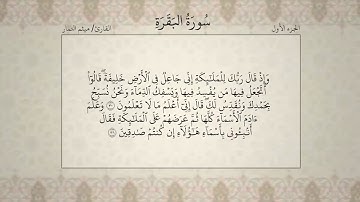 الجزء الأول
سُورَةُ البَقَرَةِ
القارئ/ ميثم التمار
وَإِذْ قَالَ رَبُّكَ لِلْمَلَٰٓئِكَةِ إِنِّى جَاعِلٌ فِى ٱلْأَرْضِ خَلِيفَةً ۖ قَالُوٓا۟
أَتَجْعَلُ فِيهَا مَن يُفْسِدُ فِيهَا وَيَسْفِكُ ٱلدِّمَآءَ وَنَحْنُ نُسَبِّحُ
بِحَمْدِكَ وَنُقَدِّسُ لَكَ ۖ قَالَ إِنِّىٓ أَعْلَمُ مَا لَا تَعْلَمُونَ ۝٣٠ وَعَلَّمَ
ءَادَمَ ٱلْأَسْمَآءَ كُلَّهَا ثُمَّ عَرَضَهُمْ عَلَى ٱلْمَلَٰٓئِكَةِ فَقَالَ
أَنۢبِـُٔونِى بِأَسْمَآءِ هَٰٓؤُلَآءِ إِن كُنتُمْ صَٰدِقِينَ ۝٣١